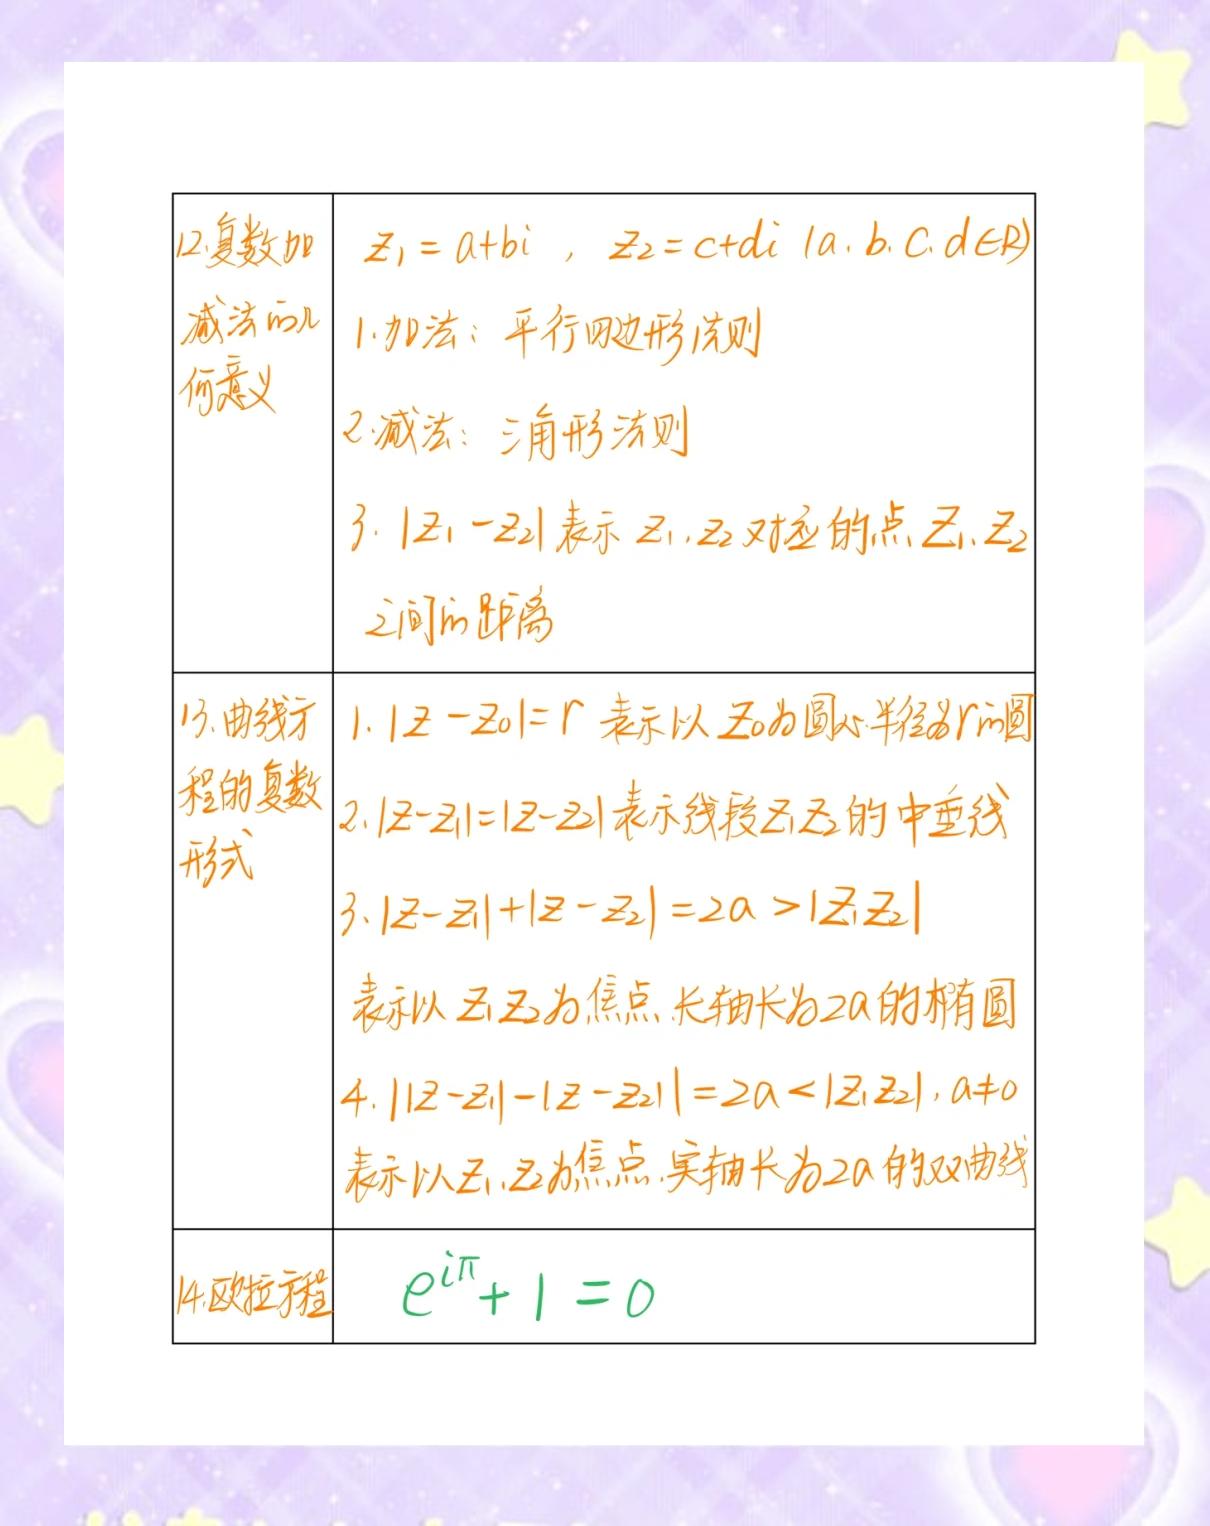 12.复数加
减法的几
何意义
z₁=a+bi , z₂=c+di (a.b.c.d∈R)
1.加法：平行四边形法则
2.减法：三角形法则
3. |z₁-z₂|表示 z₁、z₂对应的点、Z₁、Z₂
之间的距离
13.曲线方
程的复数
形式
1. |z-z₀|=r 表示以Z₀为圆心.半径为r的圆
2.|z-z₁|=|z-z₂|表示线段Z₁Z₂的中垂线
3.|z-z₁|+|z-z₂|=2a>|Z₁Z₂|
表示以Z₁Z₂为焦点、长轴长为2a的椭圆
4.||z-z₁|-|z-z₂||=2a<|Z₁Z₂|，a≠0
表示以Z₁、Z₂为焦点.实轴长为2a的双曲线
14.欧拉方程
e^{iπ}+1=0